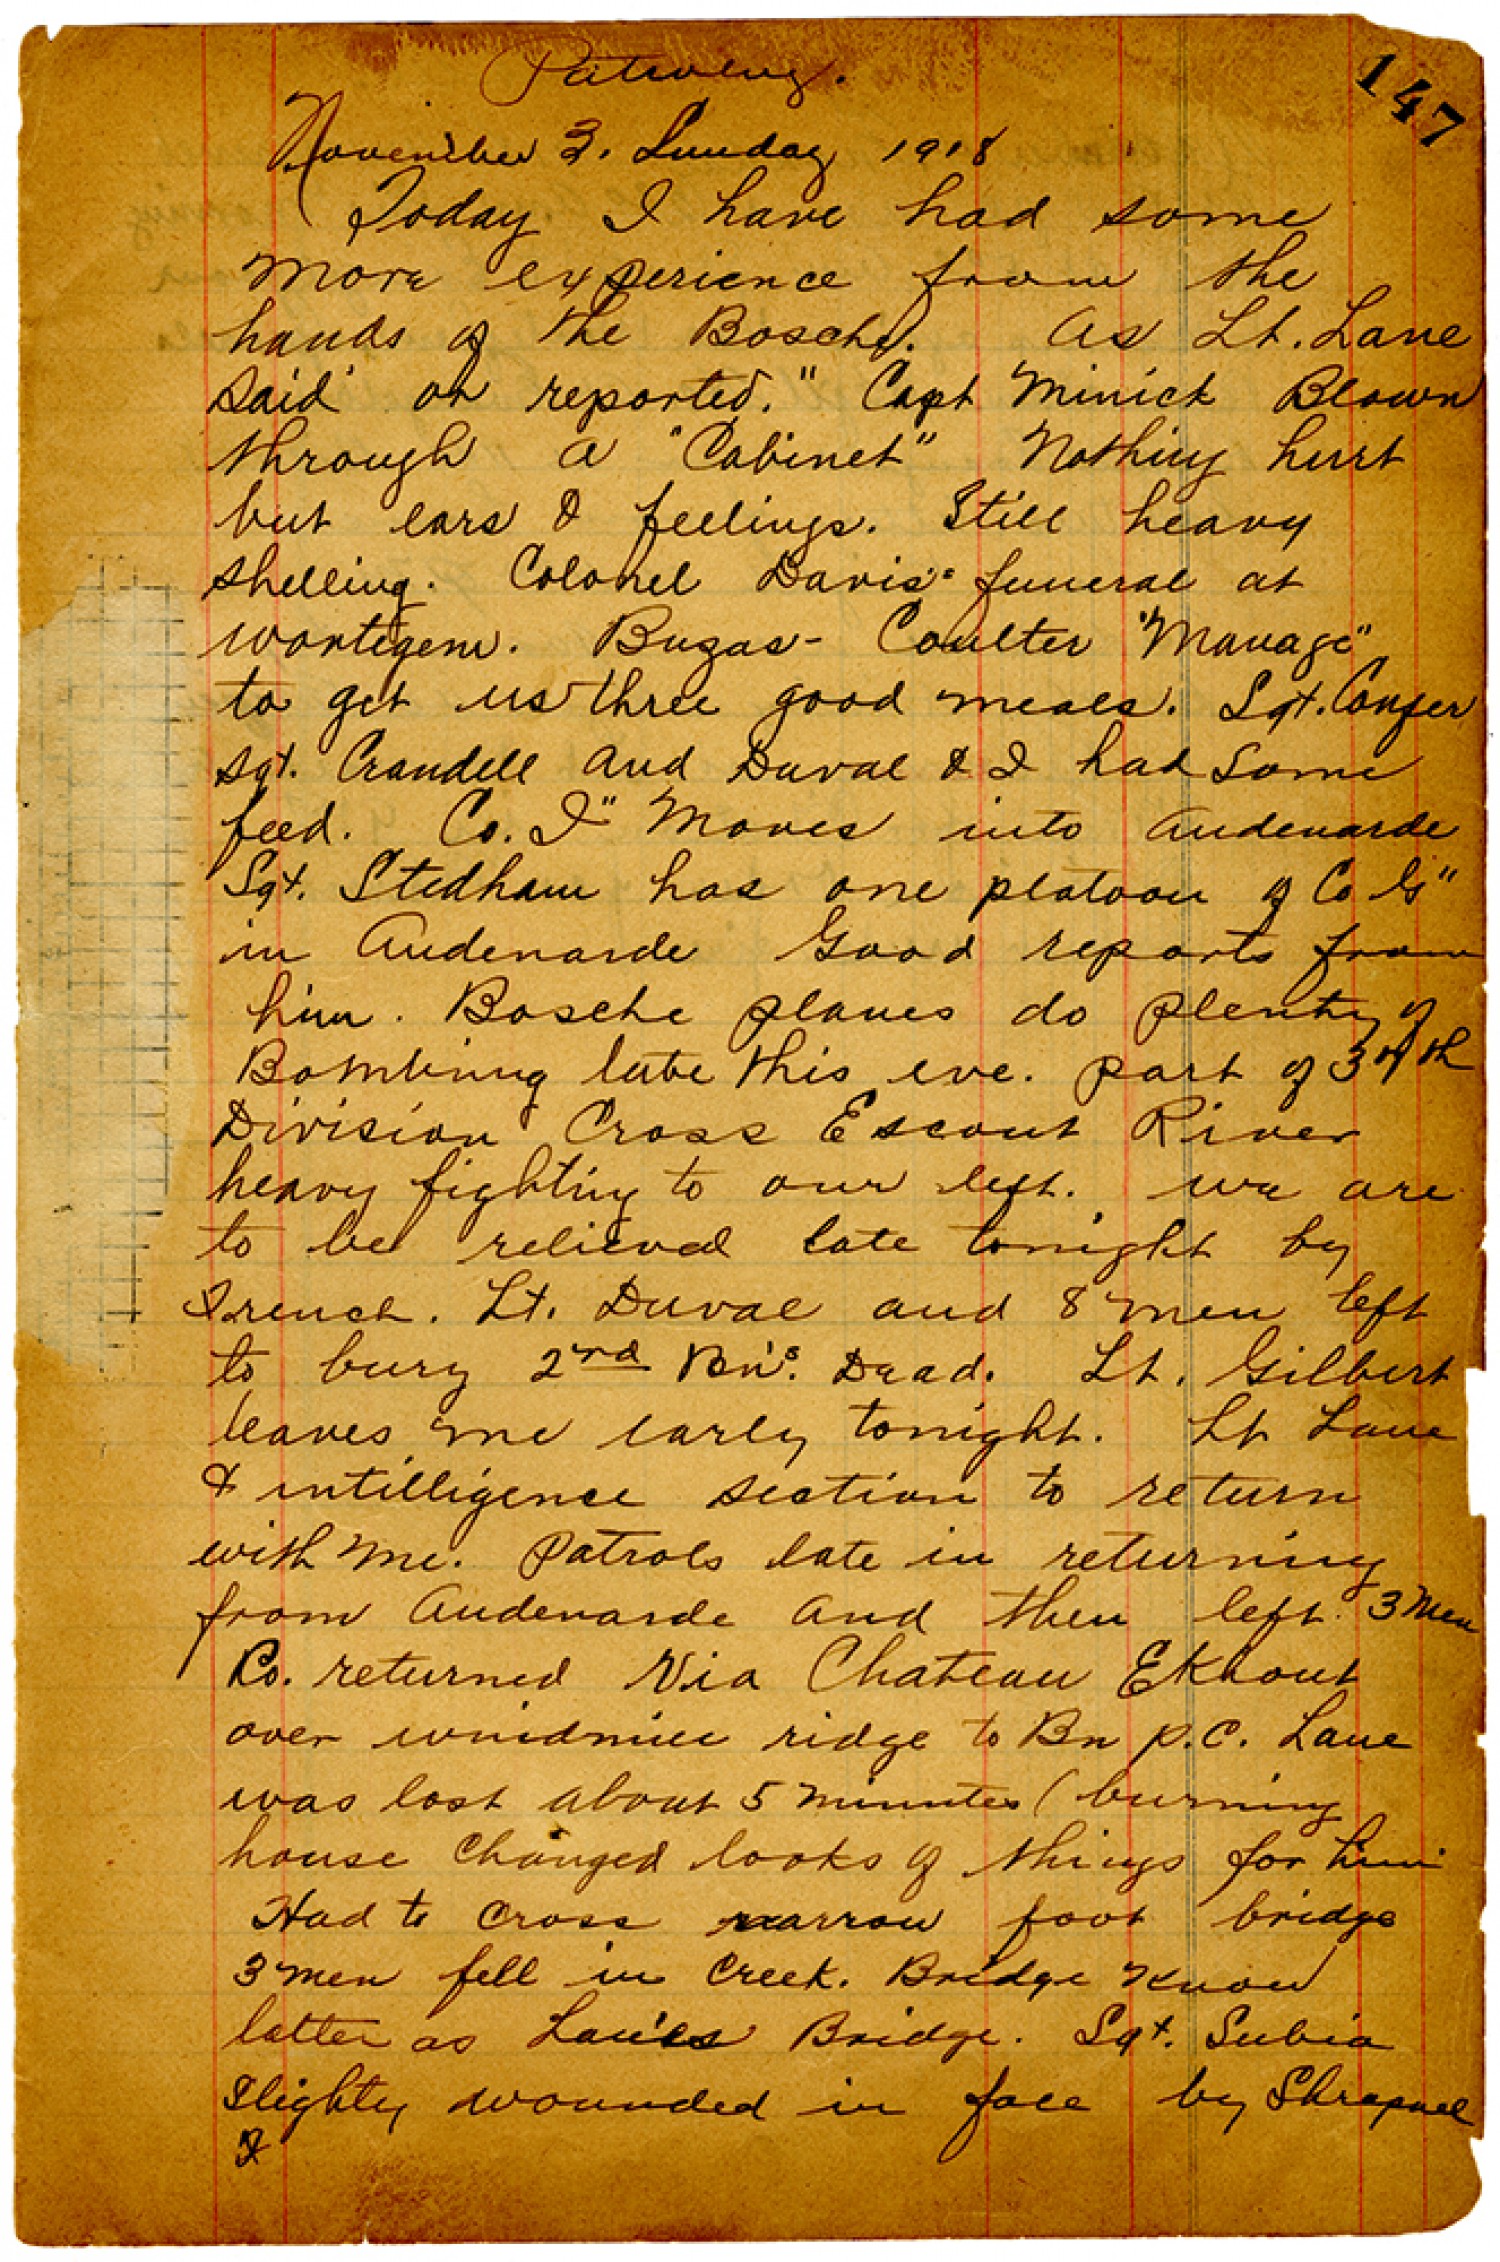 147
Patroling.
November 3. Sunday 1918
Today I have had some
more experience from the
hands of the Bosche. As Lt. Lane
said or reported. "Capt Minick Blown
through a "Cabinet" Nothing hurt
but ears & feelings. Still heavy
shelling. Colonel Davis' funeral at
Wortegem. Bugas - Coulter "Manage"
to get us three good meals. Sgt. Confer
Sgt. Crandell and Duval & I had some
feed. Co. I" Moves into Audenarde
Sgt. Stedham has one platoon of Co G"
in Audenarde Good reports from
him. Bosche planes do plenty of
Bombing late this eve. part of 37th
Division Cross Escout River
heavy fighting to our left. we are
to be relieved late tonight by
French. Lt. Duval and 8 men left
to bury 2nd Bn's. Dead. Lt. Gilbert
leaves me early tonight. Lt Lane
& intilligence section to return
with me. Patrols late in returning
from Audenarde and then left. 3 Men
Co. returned Via Chateau Ekhout
over windmill ridge to Bn P.C. Lane
was lost about 5 minutes (burning
house changed looks of things for him
Had to cross narrow foot bridge
3 men fell in creek. Bridge know
latter as Lanes Bridge. Sgt. Subia
slighty wounded in face by Shrapnel
I